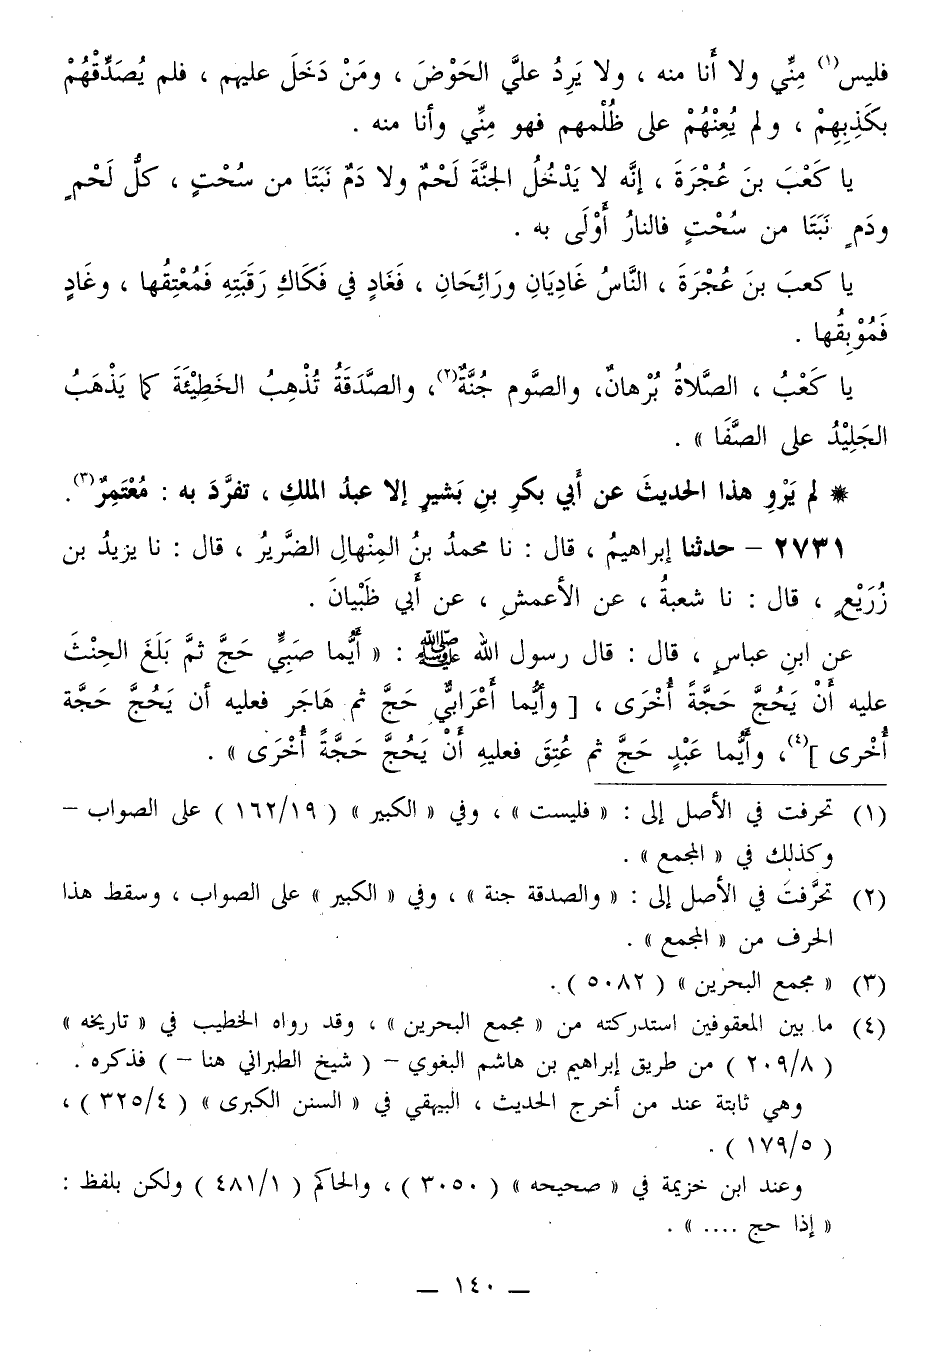 فليس(١) مِنِّي ولا أَنا منه ، ولا يَرِدُ عليَّ الحَوْضَ ، ومَنْ دَخَلَ عليهم ، فلم يُصَدِّقْهُمْ
بكَذِبِهِمْ ، ولم يُعِنْهُمْ على ظُلْمهم فهو مِنِّي وأنا منه .
يا كَعْبَ بنَ عُجْرَةَ ، إنَّه لا يَدْخُلُ الجنَّةَ لَحْمٌ ولا دَمٌ نَبَتَا من سُحْتٍ ، كلُّ لَحْمٍ
ودَمٍ نَبَتَا من سُحْتٍ فالنارُ أَوْلَى به .
يا كعبَ بنَ عُجْرَةَ ، النَّاسُ غَادِيَانِ ورَائِحَانِ ، فَغَادٍ في فَكَاكِ رَقَبَتِهِ فَمُعْتِقُها ، وغَادٍ
فَمُوْبِقُها .
يا كَعْبُ ، الصَّلاةُ بُرْهانٌ، والصَّوم جُنَّةٌ(٢)، والصَّدَقَةُ تُذْهِبُ الخَطِيْئَةَ كما يَذْهَبُ
الجَلِيْدُ على الصَّفَا » .
* لم يَرْوِ هذا الحديثَ عن أَبي بكرِ بنِ بَشيرٍ إلا عبدُ الملكِ ، تفرَّدَ به : مُعْتَمِرٌ(٣).
٢٧٣١ - حدثنا إبراهيمُ ، قال : نا محمدُ بنُ المِنْهالِ الضَّريرُ ، قال : نا يزيدُ بن
زُرَيْعٍ ، قال : نا شعبةُ ، عن الأعمشِ ، عن أَبي ظَبْيانَ .
عن ابنِ عباسٍ ، قال : قال رسول الله ﷺ : « أَيُّما صَبِيٍّ حَجَّ ثمَّ بَلَغَ الحِنْثَ
عليه أَنْ يَحُجَّ حَجَّةً أُخْرَى ، [ وأيُّما أَعْرَابيٌّ حَجَّ ثم هَاجَر فعليه أن يَحُجَّ حَجَّة
أُخْرى ](٤)، وأَيُّما عَبْدٍ حَجَّ ثم عُتِقَ فعليهِ أَنْ يَحُجَّ حَجَّةً أُخْرَى » .
(١) تحرفت في الأصل إلى : « فليست » ، وفي « الكبير » ( ١٦٢/١٩ ) على الصواب -
وكذلك في « المجمع » .
(٢) تحرَّفتَ في الأصل إلى : « والصدقة جنة » ، وفي « الكبير » على الصواب ، وسقط هذا
الحرف من « المجمع » .
(٣) « مجمع البحرين » ( ٥٠٨٢ ) .
(٤) ما بين المعقوفين استدركته من « مجمع البحرين » ، وقد رواه الخطيب في « تاريخه »
( ٢٠٩/٨ ) من طريق إبراهيم بن هاشم البغوي - ( شيخ الطبراني هنا - ) فذكره .
وهي ثابتة عند من أخرج الحديث ، البيهقي في « السنن الكبرى » ( ٣٢٥/٤ ) ،
( ١٧٩/٥ ) .
وعند ابن خزيمة في « صحيحه » ( ٣٠٥٠ ) ، والحاكم ( ٤٨١/١ ) ولكن بلفظ :
« إذا حج .... » .
— ١٤٠ —